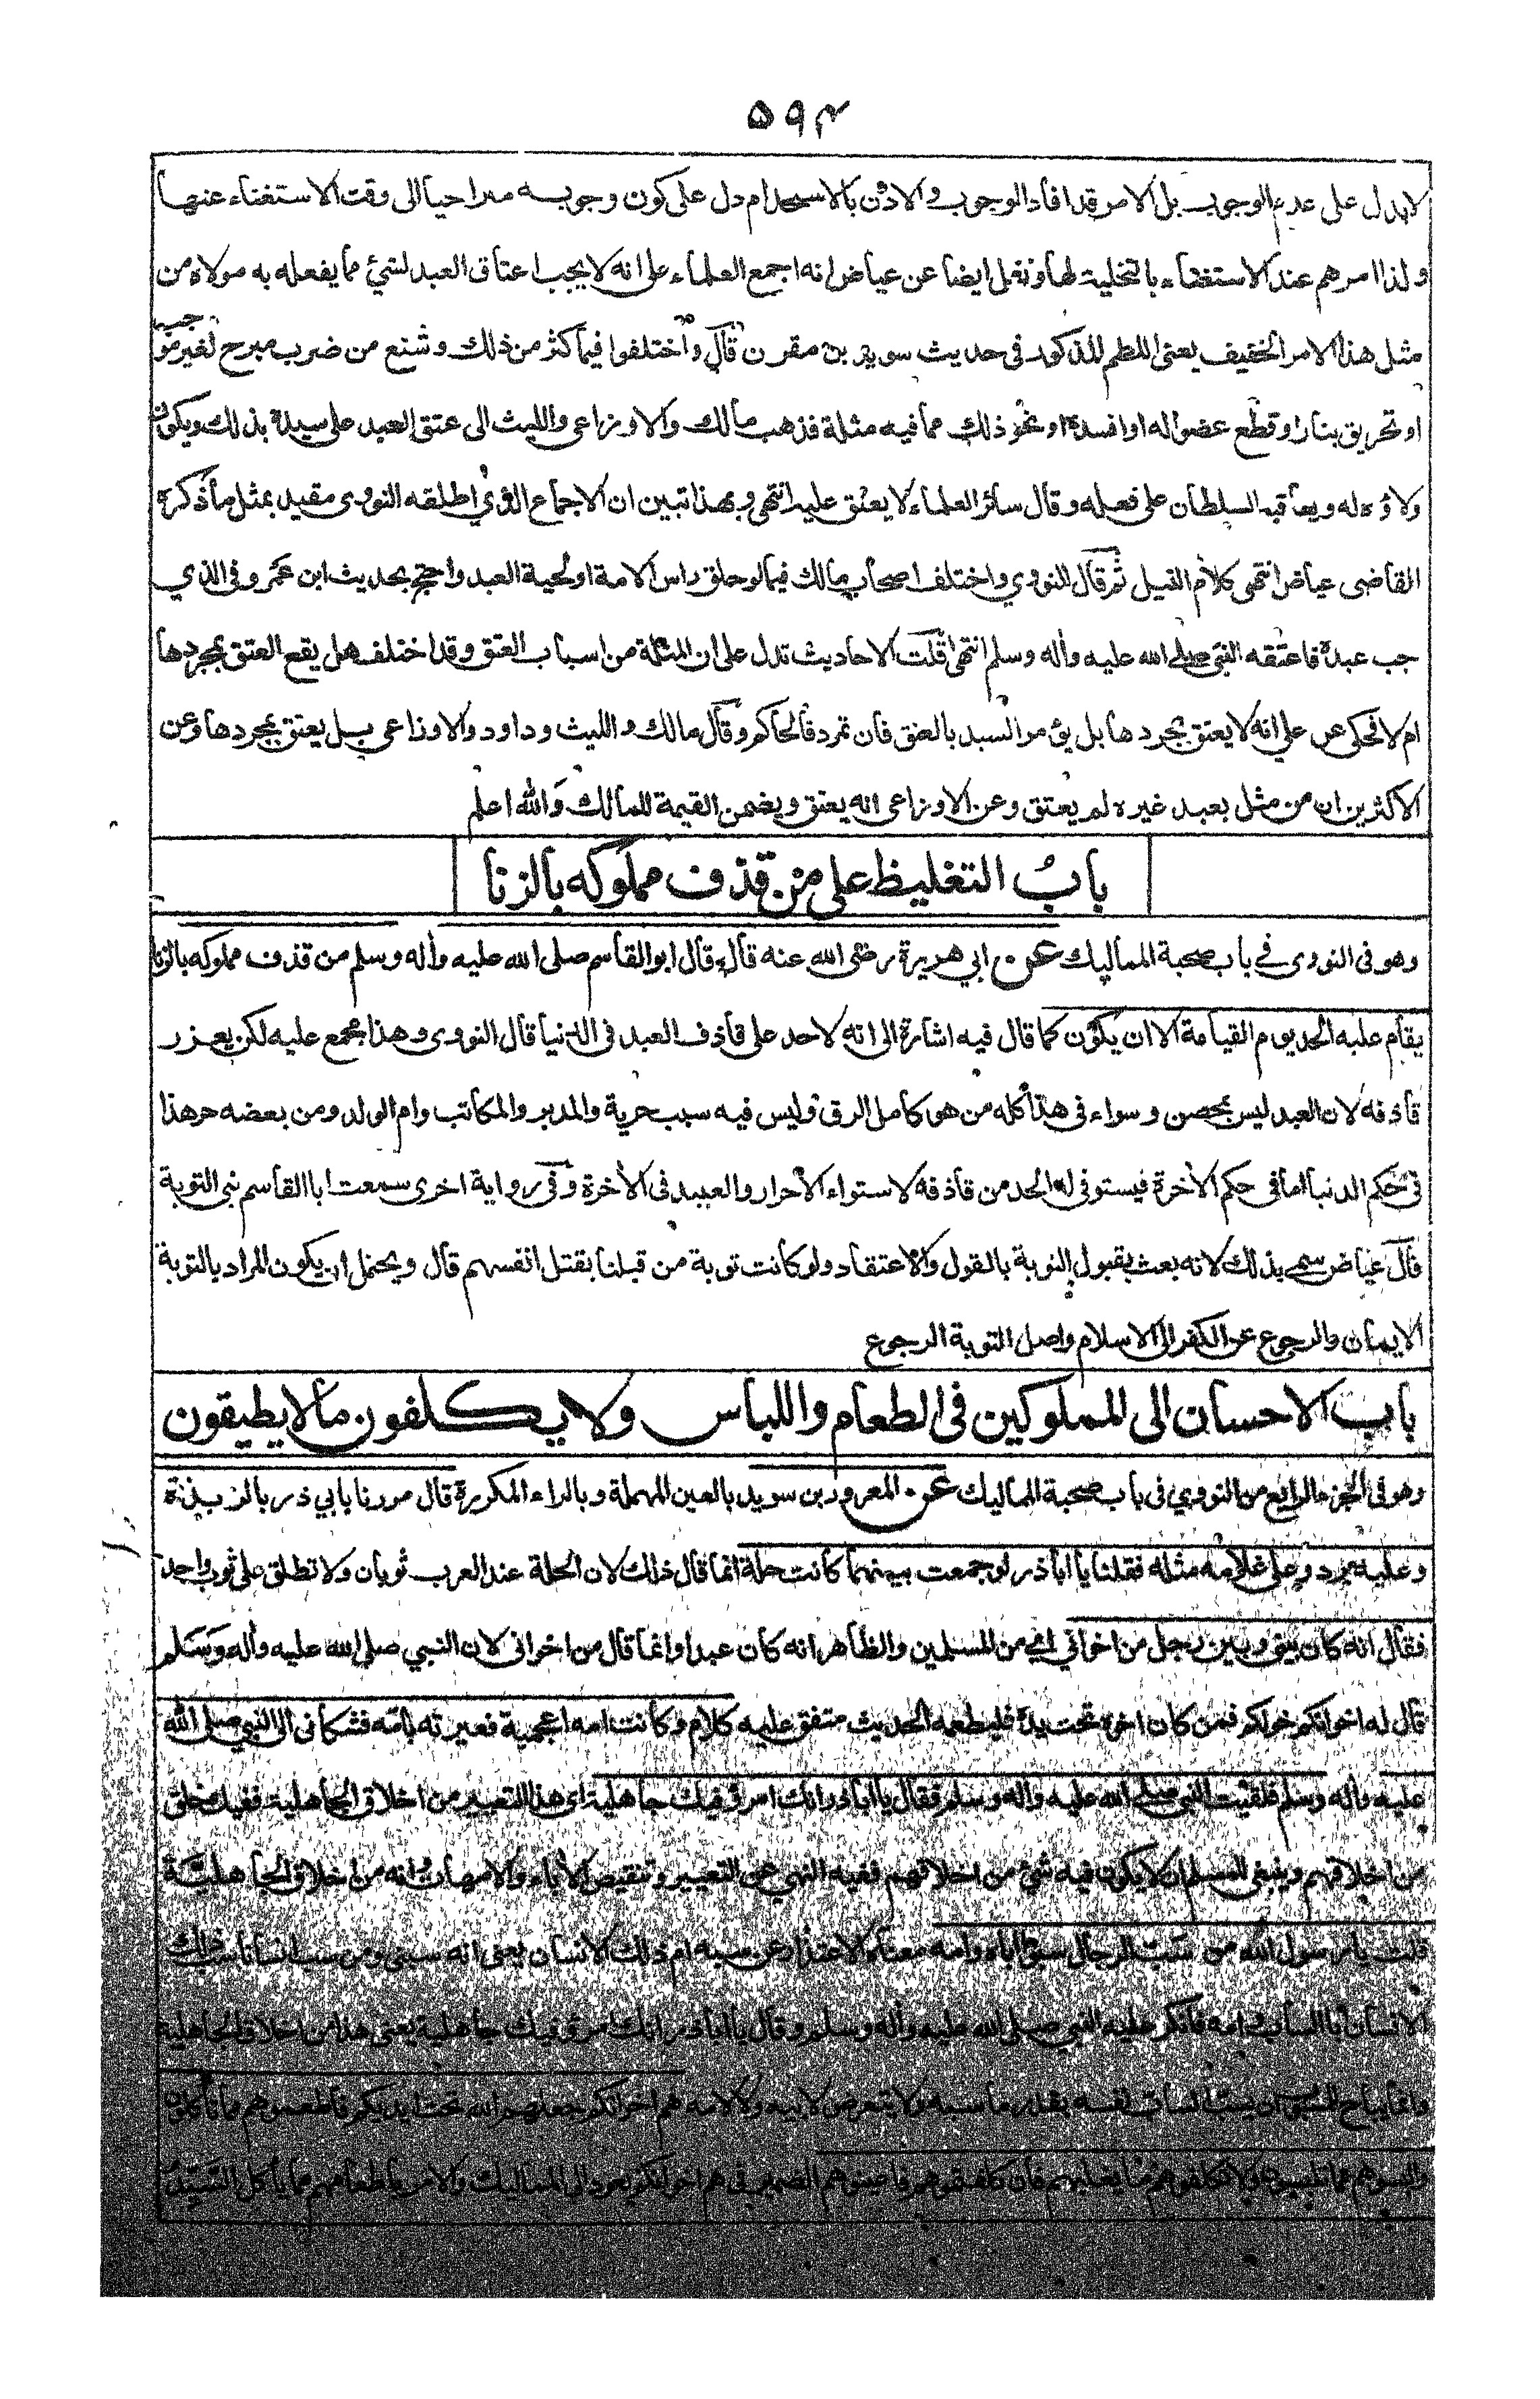 ٥٩٤
لا يدل على عدم الوجوب بل الامر قد افاد الوجوب والاذن بالاستخدام دل على كون وجوبه متراخيا الى وقت الاستغناء عنها
ولذا امرهم عند الاستغناء بالتخلية لها ونقل ايضا عن عياض انه اجمع العلماء على انه لا يجب اعتاق العبد لشئ مما يفعله به مولاه من
مثل هذا الامر الخفيف يعنى اللطم المذكور فى حديث سويد بن مقرن قال واختلفوا فيما كثر من ذلك وشنع من ضرب مبرح لغير موجب
او تحريق بنار او قطع عضو له او افسده او نحو ذلك مما فيه مثلة فذهب مالك والاوزاعى والليث الى عتق العبد على سيده بذلك ويكون
ولاؤه له ويعاقبه السلطان على فعله وقال سائر العلماء لا يعتق عليه انتهى وبهذا تبين ان الاجماع الذي اطلقه النووى مقيد بمثل ما ذكره
القاضى عياض انتهى كلام النيل ثم قال النووي واختلف اصحاب مالك فيما لو حلق راس الامة او لحية العبد واحتج بحديث ابن عمرو فى الذي
جب عبده فاعتقه النبى صلى الله عليه وأله وسلم انتهى قلت الاحاديث تدل على ان المثلة من اسباب العتق وقد اختلف هل يقع العتق بمجردها
ام لا فحكى عن على انه لا يعتق بمجردها بل يؤمر السيد بالعتق فان تمرد فالحاكم وقال مالك والليث وداود والاوزاعى بل يعتق بمجردها وعن
الاكثرين ان من مثل بعبد غيره لم يعتق وعن الاوزاعى انه يعتق ويضمن القيمة للمالك والله اعلم
بابُ التغليظ على من قذف مملوكه بالزنا
وهو فى النووى في باب صحبة المماليك عن ابي هريرة رضى الله عنه قال قال ابو القاسم صلى الله عليه وأله وسلم من قذف مملوكه بالزنا
يقام عليه الحد يوم القيامة الا ان يكون كما قال فيه اشارة الى انه لا حد على قاذف العبد فى الدنيا قال النووى وهذا مجمع عليه لكن يعزر
قاذفه لان العبد ليس بمحصن وسواء فى هذا كله من هو كامل الرق وليس فيه سبب حرية والمدبر والمكاتب وام الولد ومن بعضه حر هذا
فى حكم الدنيا اما فى حكم الأخرة فيستوفى له الحد من قاذفه لاستواء الأحرار والعبيد فى الأخرة وفى رواية اخرى سمعت ابا القاسم نبى التوبة
قال عياض سمى بذلك لانه بعث بقبول التوبة بالقول والاعتقاد ولو كانت توبة من قبلنا بقتل انفسهم قال ويحتمل ان يكون المراد بالتوبة
الايمان والرجوع عن الكفر الى الاسلام واصل التوبة الرجوع
باب الاحسان الى المملوكين فى الطعام واللباس ولا يكلفون ما لا يطيقون
وهو فى الجزء الرابع من النووي فى باب صحبة المماليك عن المعرور بن سويد بالعين المهملة وبالراء المكررة قال مررنا بابي ذر بالربذة
وعليه برد وعلى غلامه مثله فقلنا يا ابا ذر لو جمعت بينهما كانت حلة انما قال ذلك لان الحلة عند العرب ثوبان ولا تطلق على ثوب واحد
فقال انه كان بينى وبين رجل من اخواني اي من المسلمين والظاهر انه كان عبدا وانما قال من اخوانى لان النبي صلى الله عليه وأله وسلم
قال له اخوانكم خولكم فمن كان اخوه تحت يده فليطعمه الحديث متفق عليه كلام وكانت امه اعجمية فعيرته بامه فشكانى الى النبي صلى الله
عليه وأله وسلم فلقيت النبى صلى الله عليه وأله وسلم فقال يا ابا ذر انك امرؤ فيك جاهلية اى هذا التعيير من اخلاق الجاهلية ففيك خلق
من اخلاقهم وينبغى للمسلم ان لا يكون فيه شئ من اخلاقهم ففيه النهي عن التعيير وتنقيص الأباء والامهات وانه من اخلاق الجاهلية
قلت يا رسول الله من سب الرجال سبوا اباه وامه معناه الاعتذار عن سبه ام ذلك الانسان يعنى انه سبنى ومن سب انسانا سب ذلك
الانسان ابا الساب وامه فانكر عليه النبي صلى الله عليه وأله وسلم وقال يا ابا ذر انك امرؤ فيك جاهلية يعنى هذا من اخلاق الجاهلية
وانما يباح للمسبوب ان يسب الساب نفسه بقدر ما سبه ولا يتعرض لابيه ولا لامه هم اخوانكم جعلهم الله تحت ايديكم فاطعموهم مما تأكلون
والبسوهم مما تلبسون ولا تكلفوهم ما يغلبهم فان كلفتموهم فاعينوهم الضمير فى هم اخوانكم يعود الى المماليك والامر باطعامهم مما يأكل السيد